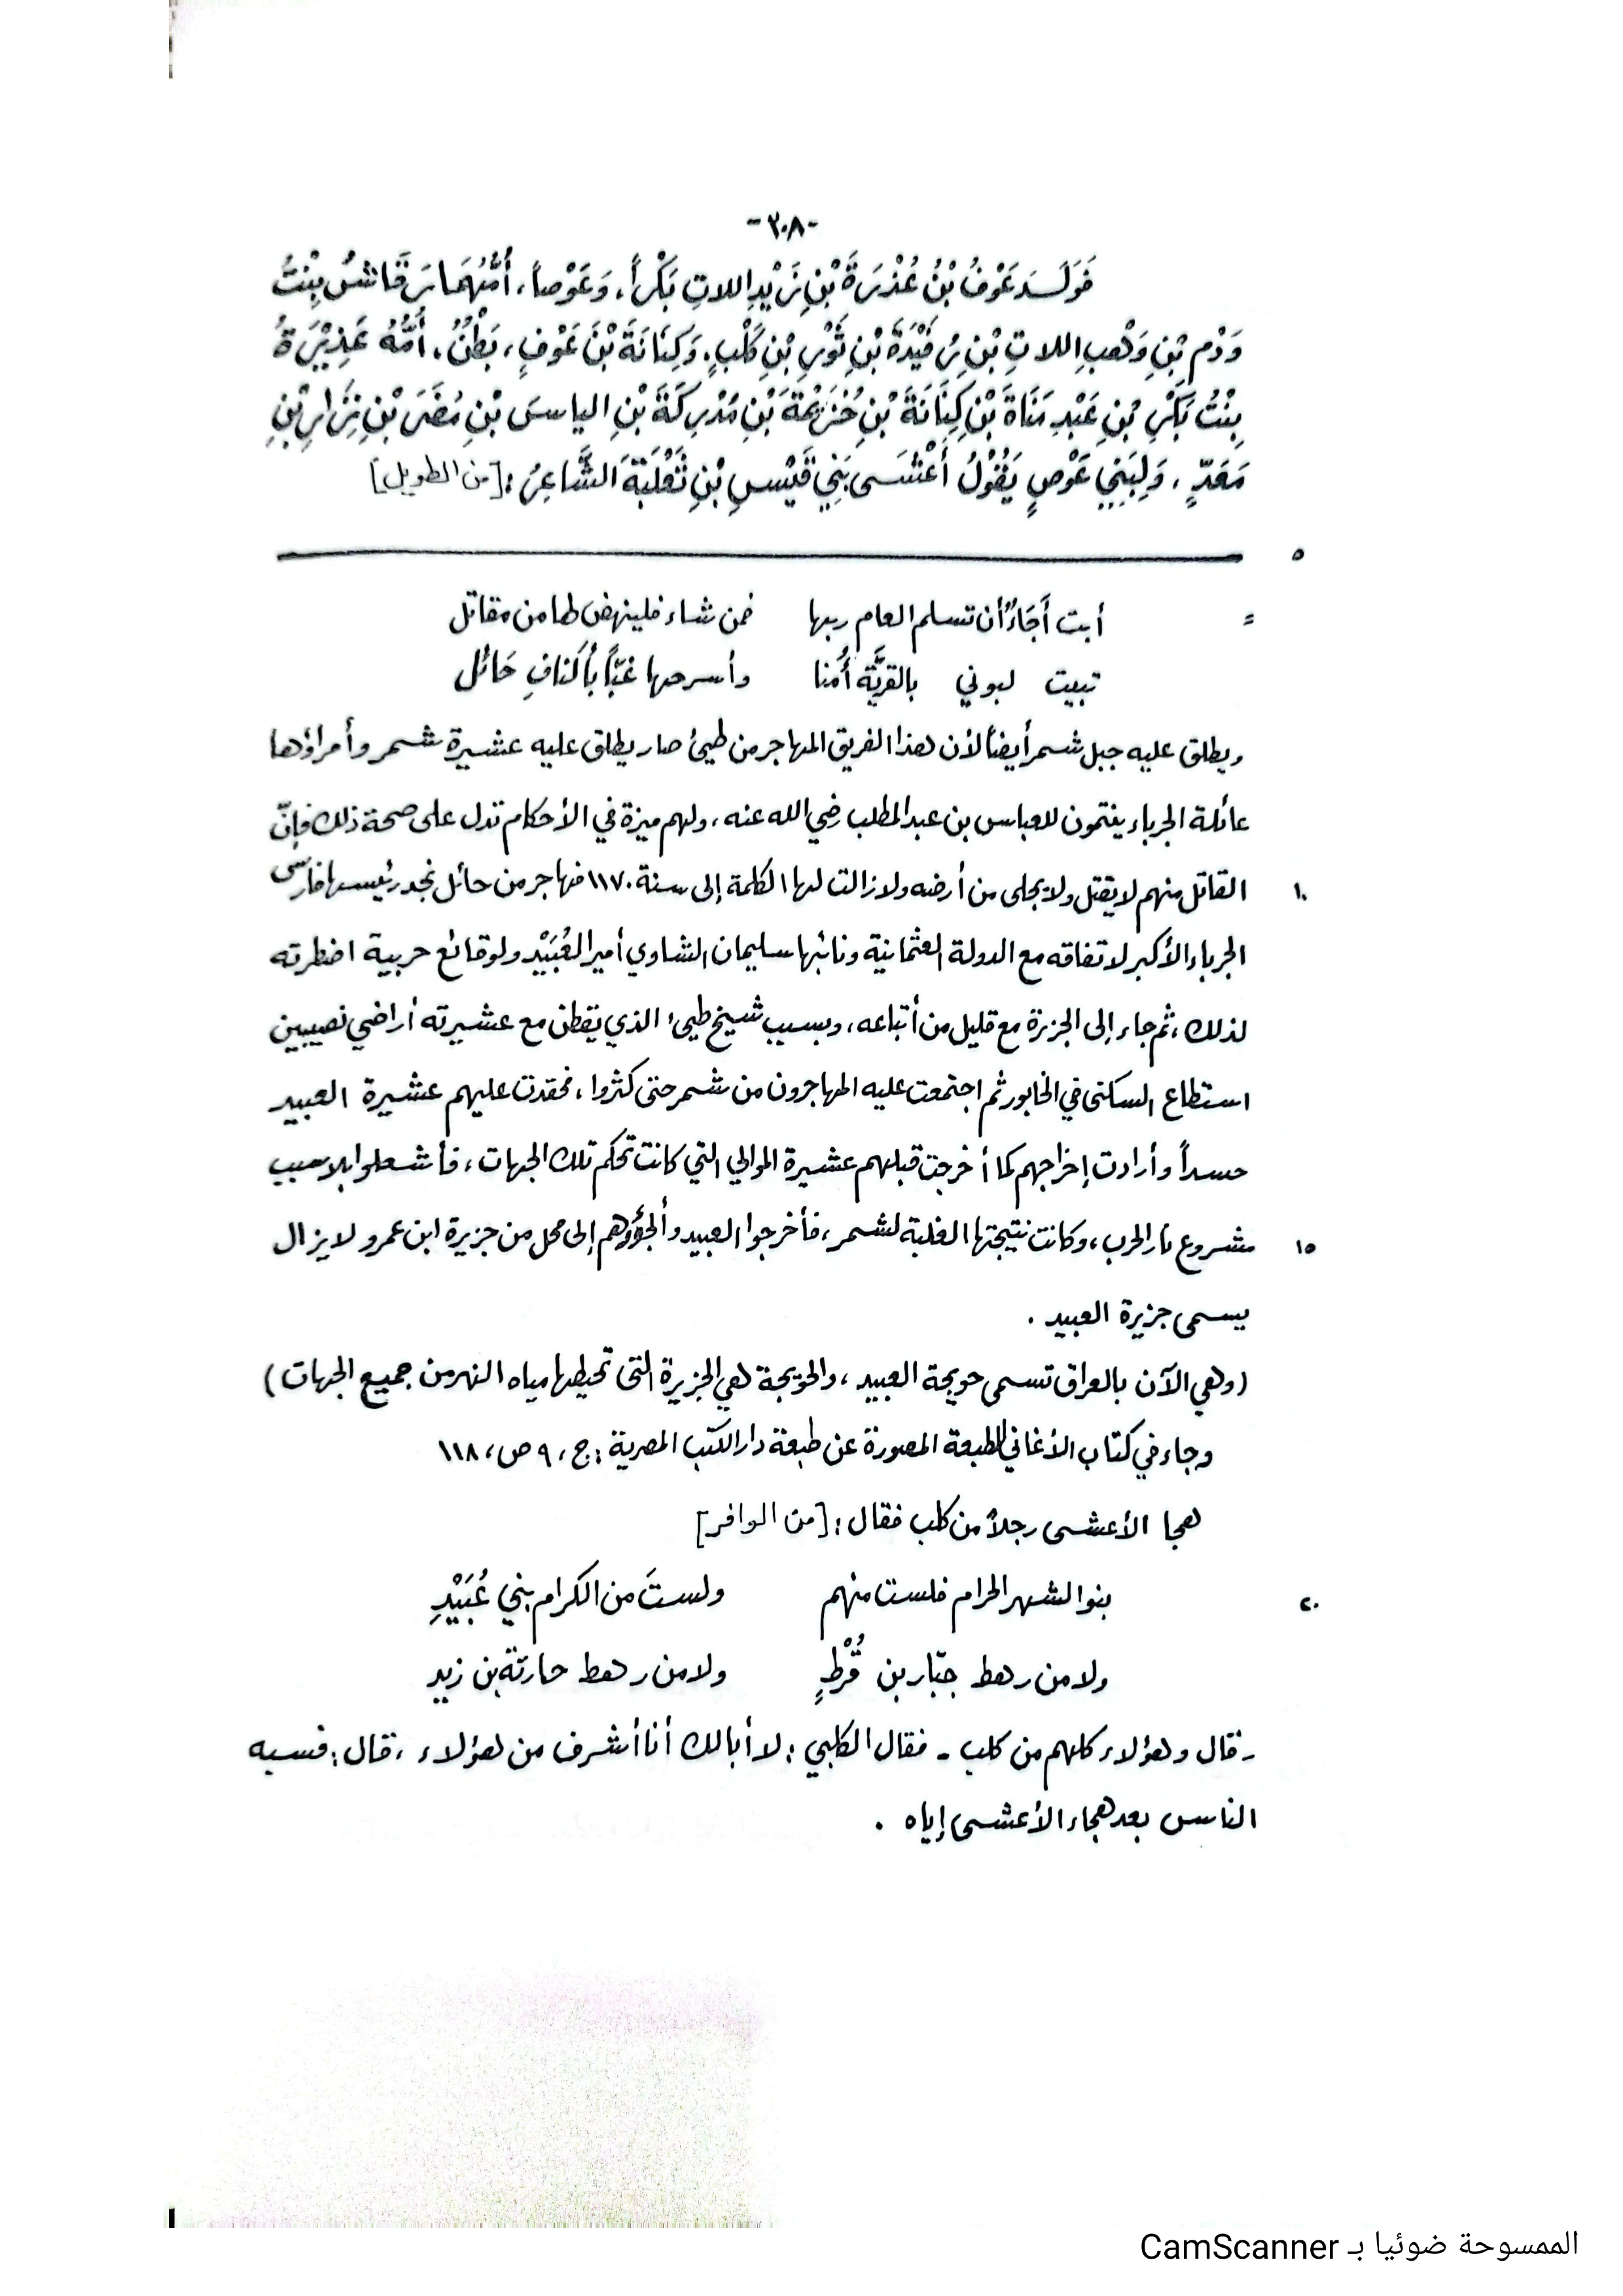 -٣٠٨-
فَوَلَـدَ عَوْفُ بْنُ عُذْرَةَ بْنِ زَيْدِ اللاتِ بَكْراً، وَعَوْصاً، أُمُّهُمَا رَقَاشُ بِنْتُ
وَدْمِ بْنِ وَهْبِ اللاتِ بْنِ رُفَيْدَةَ بْنِ ثَوْرِ بْنِ كَلْبٍ، وَكِنَانَةَ بْنَ عَوْفٍ، بَطْنٌ، أُمُّهُ عَذِيْرَةُ
بِنْتُ بَكْرِ بْنِ عَبْدِ مَنَاةَ بْنِ كِنَانَةَ بْنِ خُزَيْمَةَ بْنِ مُدْرِكَةَ بْنِ الياسَ بْنِ مُضَرَ بْنِ نِزَارِ بْنِ
مَعَدٍّ، وَلِبَنِي عَوْصٍ يَقُوْلُ أَعْشَى بَنِي قَيْسِ بْنِ ثَعْلَبَةَ الشَّاعِرُ: [من الطويل]
٥
= أبت أَجَاءٌ أن تسلم العام ربها فمن شاء فلينهض لها من مقاتل
تبيت لبوني بالقريَّة أُمنا وأسرحها غبّاً بأكنافِ حَائل
ويطلق عليه جبل شمر أيضاً لأن هذا الفريق المهاجر من طيئ صار يطلق عليه عشيرة شمر وأمراؤها
عائلة الجرباء ينتمون للعباس بن عبد المطلب رضي الله عنه، ولهم ميزة في الأحكام تدل على صحة ذلك فإنّ
١٠ القاتل منهم لا يقتل ولا يجلى من أرضه ولا زالت لها الكلمة إلى سنة ١١٧٠ فهاجر من حائل نجد رئيسها فارس
الجرباء الأكبر لاتفاقه مع الدولة العثمانية ونائبها سليمان الشاوي أمير العُبَيْد ولوقائع حربية اضطرته
لذلك، ثم جاء إلى الجزيرة مع قليل من أتباعه، وبسبب شيخ طيئ الذي يقطن مع عشيرته أراضي نصيبين
استطاع السكنى في الخابور ثم اجتمعت عليه المهاجرون من شمر حتى كثروا، فحقدت عليهم عشيرة العبيد
حسداً وأرادت إخراجهم كما أخرجت قبلهم عشيرة الموالي التي كانت تحكم تلك الجهات، فأشعلوا بلا سبب
١٥ مشروع نار الحرب، وكانت نتيجتها الغلبة لشمر، فأخرجوا العبيد وألجؤوهم إلى محل من جزيرة ابن عمرو لا يزال
يسمى جزيرة العبيد .
(وهي الآن بالعراق تسمى حويجة العبيد، والحويجة هي الجزيرة التي تحيطها مياه النهر من جميع الجهات)
وجاء في كتاب الأغاني الطبعة المصورة عن طبعة دار الكتب المصرية: ج، ٩ ص، ١١٨
هجا الأعشى رجلاً من كلب فقال: [من الوافر]
٢٠ بنو الشهر الحرام فلست منهم ولستَ من الكرام بني عُبَيْدِ
ولا من رهط جبّار بن قُرْطٍ ولا من رهط حارثة بن زيد
- قال وهؤلاء كلهم من كلب - فقال الكلبي: لا أبا لك أنا أشرف من هؤلاء، قال: فسبه
الناس بعد هجاء الأعشى إياه .
الممسوحة ضوئيا بـ CamScanner